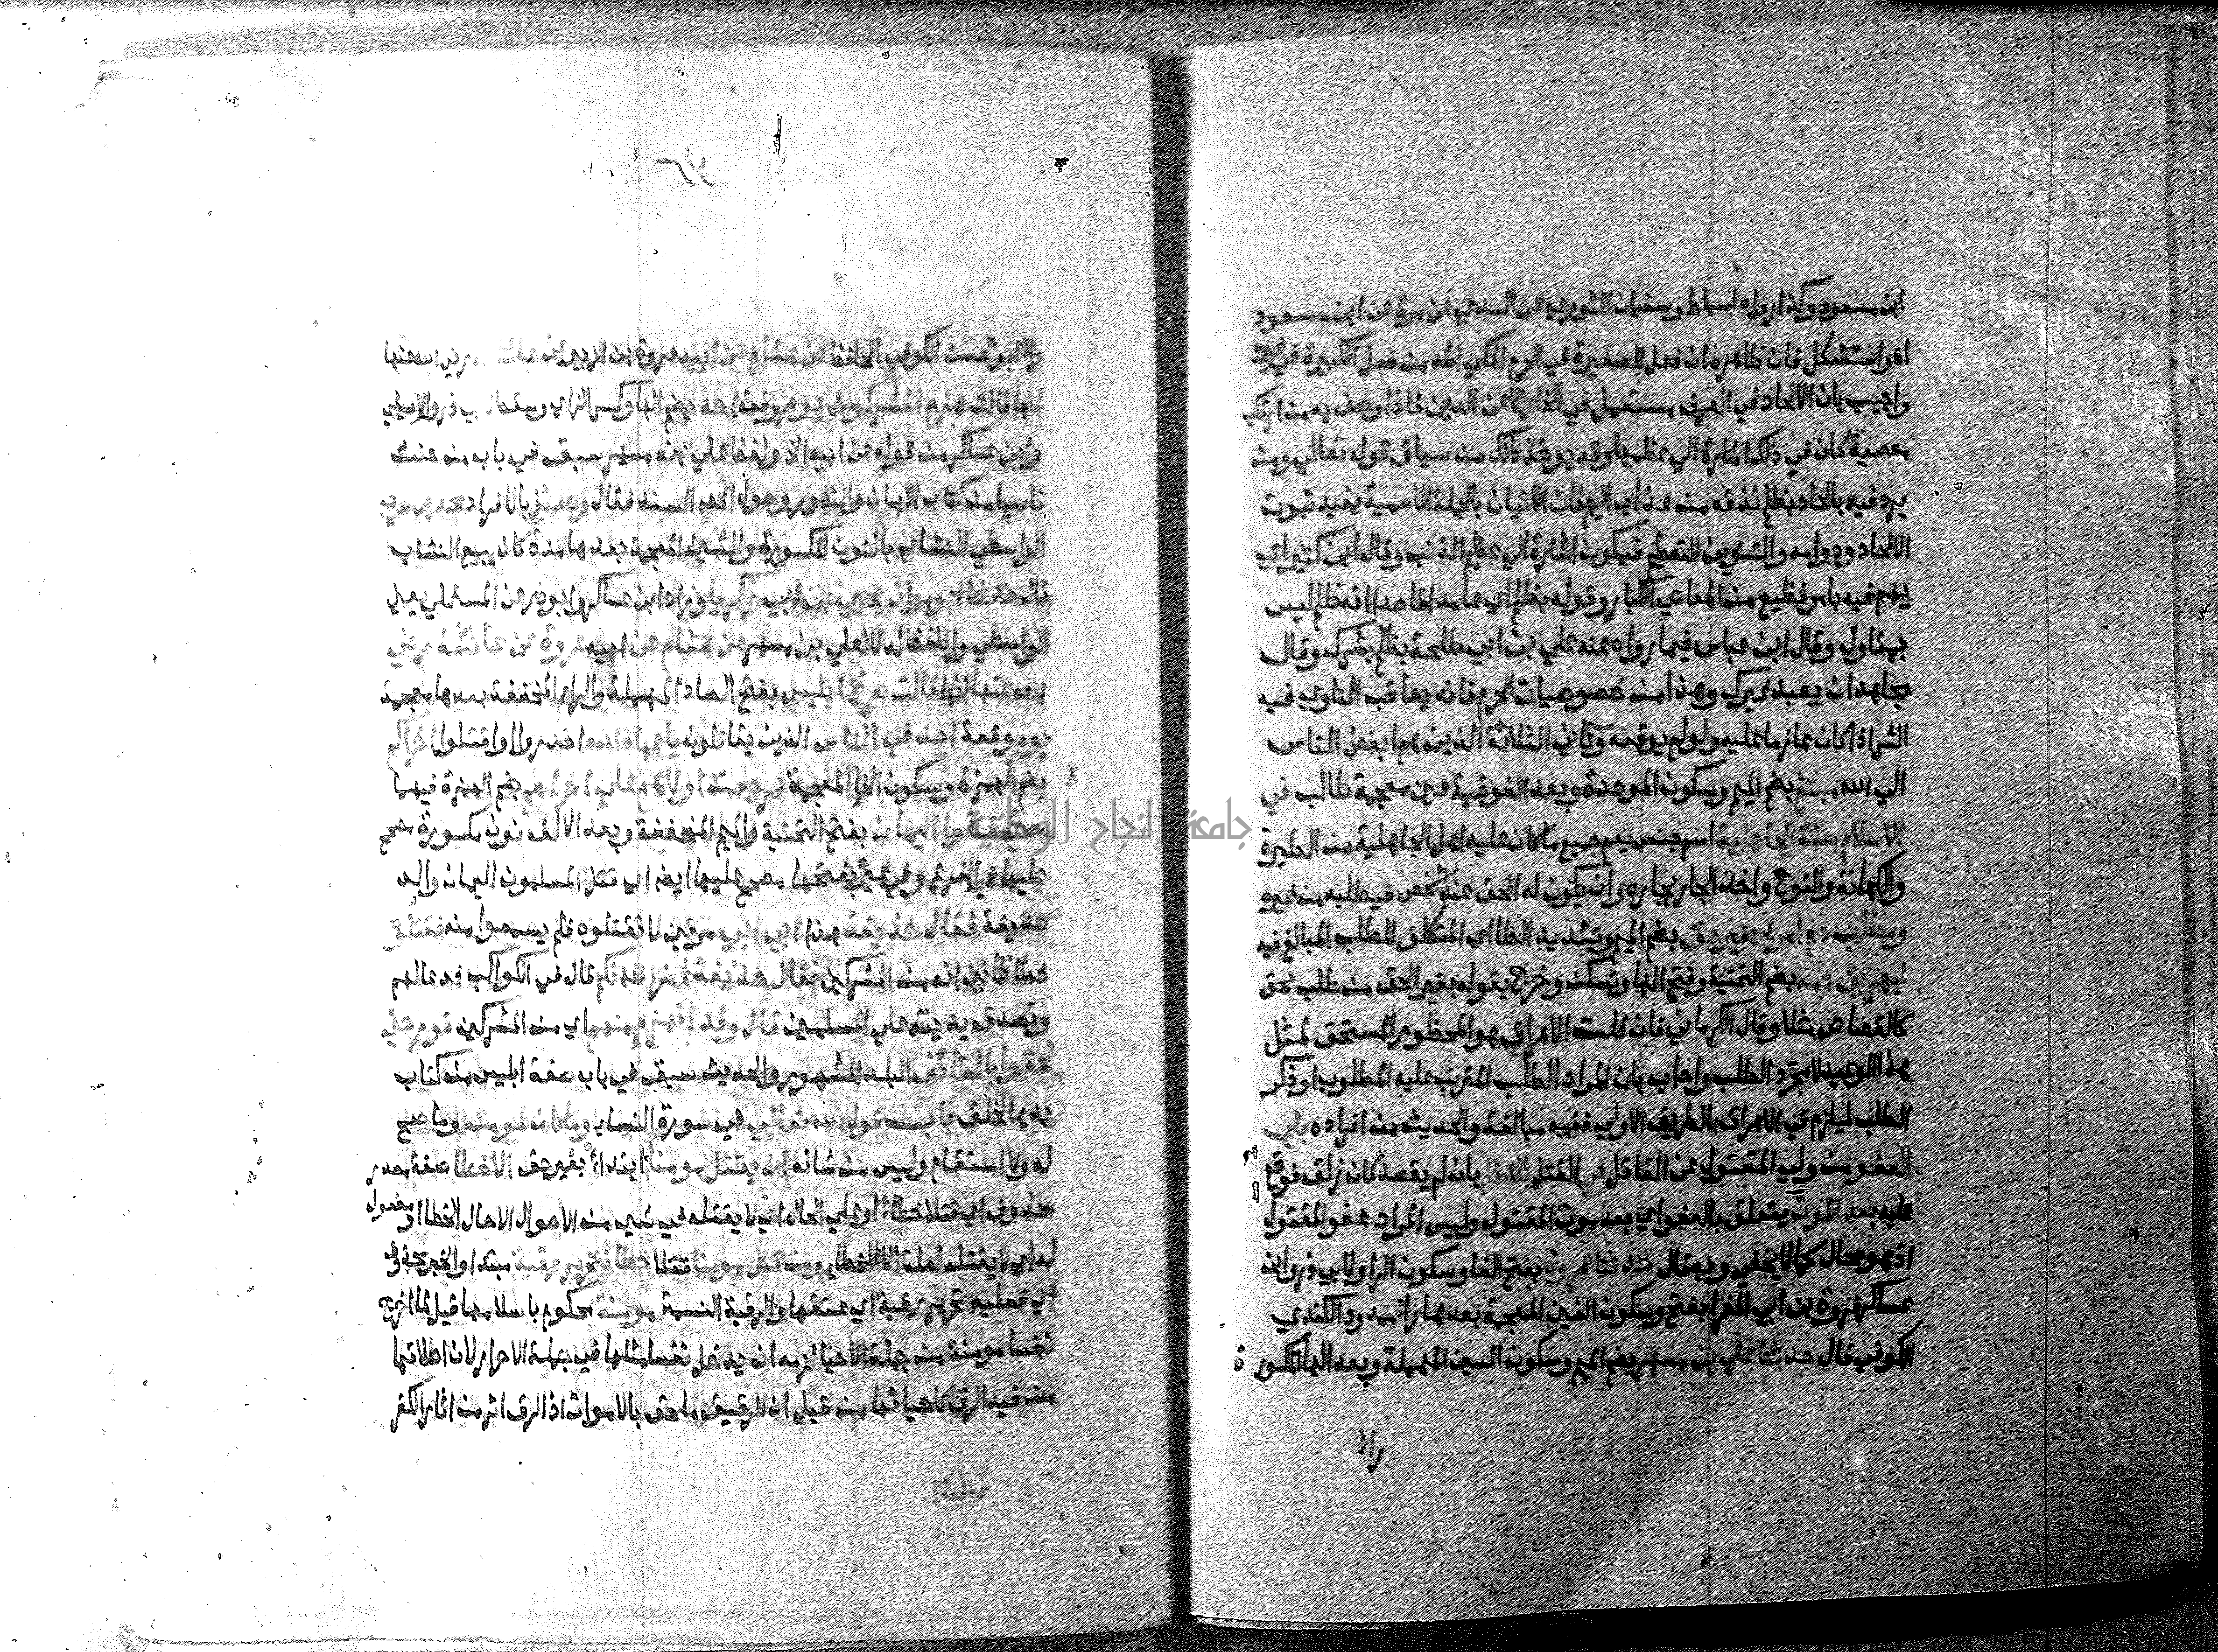 ابن مسعود وكذا رواه اسباط وسفيان الثوري عن السدي عن مرة عن ابن مسعود
واستشكل فان ظاهره ان فعل الصغيرة في الحرم المكي اشد من فعل الكبيرة في غيره
واجيب بان الالحاد في العرف مستعمل في الخارج عن الدين فاذا وصف به من ارتكب
معصية كان في ذلك اشارة الي عظمها وقد يوخذ ذلك من سياق قوله تعالي ومن
يرد فيه بالحاد بظلم نذقه من عذاب اليم فان الاتيان بالجملة الاسمية يفيد ثبوت
الالحاد ودوامه والتنوين للتعظيم فيكون اشارة الي عظم الذنب وقال ابن كثير اي
يهم فيه بامر فظيع من المعاصي الكبار وقوله بظلم اي عامدا قاصدا انه ظلم ليس
بمتاول وقال ابن عباس فيما رواه عنه علي بن ابي طلحة بظلم بشرك وقال
مجاهد ان يعبد غيرك وهذا من خصوصيات الحرم فانه يعاقب الناوي فيه
الشر اذا كان عازما عليه ولو لم يوقعه وثاني الثلاثة الذين هم ابغض الناس
الي الله مبتغ بضم الميم وسكون الموحدة وبعد الفوقية غين معجمة طالب في
الاسلام سنة الجاهلية اسم جنس يعم جميع ما كان عليه اهل الجاهلية من الطيرة
والكهانة والنوح واخذ الجار بجاره وان يكون له الحق عند شخص فيطلبه من غيره
ومطلب دم امرء بغير حق بضم الميم وتشديد الطا اي المتكلف للطلب المبالغ فيه
ليهريق دمه بضم التحتية وفتح الها وتسكن وخرج بقوله بغير الحق من طلب بحق
كالقصاص مثلا وقال الكرماني فان قلت الاهراق هو المحظور المستحق لمثل
هذا الوعيد لا مجرد الطلب واجاب بان المراد الطلب المترتب عليه المطلوب او ذكر
الطلب ليلزم في الاهراق بالطريق الاولي ففيه مبالغة والحديث من افراده باب
العفو من ولي المقتول عن القاتل في القتل الخطا بان لم يقصد كان زلق فوقع
عليه بعد الموت يتعلق بالعفو اي بعد موت المقتول وليس المراد عفو المقتول
اذ هو محال كما لا يخفي وبه قال حدثنا فروة بفتح الفا وسكون الرا ولابي ذر وابن
عساكر فروة بن ابي المغرا بفتح وسكون الغين المعجمة بعدها را ممدود الكندي
الكوفي قال حدثنا علي بن مسهر بضم الميم وسكون السين المهملة وبعد الها المكسورة
راء
راء ابو الحسن الكوفي الحافظ عن هشام عن ابيه عروة ابن الزبير عن عائشة رضي الله عنها
انها قالت هزم المشركون يوم وقعة احد بضم الها وكسر الزاي وسقط لابي ذر والاصيلي
وابن عساكر من قوله عن ابيه الخ ولفظ علي بن مسهر سبق في باب من حنث
ناسيا من كتاب الايمان والنذور وحول المص السند فقال وحدثني بالافراد محمد بن حرب
الواسطي النشائي بالنون المكسورة والشين المعجمة بعدها مدة كان يبيع النشاب
قال حدثنا ابو مروان يحيي بن ابي زكريا وزاد ابن عساكر وابو ذر عن المستملي يعني
الواسطي واللفظ له لا لعلي بن مسهر عن هشام عن ابيه عروة عن عائشة رضي
الله عنها انها قالت صرخ ابليس بفتح الصاد المهملة والرا المخففة بعدها معجمة
يوم وقعة احد في الناس الذين يقاتلون يا عباد الله احذروا او اقتلوا اخراكم
بضم الهمزة وسكون الخا المعجمة فرجعت اولاهم علي اخراهم بضم الهمزة فيهما
حتي قتلوا اليمان بفتح التحتية والميم المخففة وبعد الالف نون مكسورة مصحح
عليها في الفرع وفي غيره بفتحها مصحح عليها ايضا اي قتل المسلمون اليمان والد
حذيفة فقال حذيفة هذا ابي ابي مرتين لا تقتلوه فلم يسمعوا منه فقتلوه
خطا ظانين انه من المشركين فقال حذيفة غفر الله لكم قال في الكواكب فدعا لهم
وتصدق بديته علي المسلمين قال وقد انهزم منهم اي من المشركين قوم حتي
لحقوا بالطائف البلد المشهور والحديث سبق في باب صفة ابليس من كتاب
بدء الخلق باب قول الله تعالي في سورة النساء وما كان لمومن وما صح
له ولا استقام وليس من شانه ان يقتل مومنا ابتداء بغير حق الا خطا صفة مصدر
محذوف اي قتلا خطأ او علي الحال اي لا يقتله في شيء من الاحوال الا حال الخطا او مفعول
له اي لا يقتله لعلة الا للخطا ومن قتل مومنا قتلا خطا فتحرير رقبة مبتدا والخبر محذوف
اي فعليه تحرير رقبة اي عتقها والرقبة النسمة مومنة محكوم باسلامها قيل لما اخرج
نفسا مومنة من جملة الاحيا لزمه ان يدخل نفسا مثلها في جملة الاحرار لان اطلاقها
من قيد الرق كاحيائها من قبل ان الرقيق ملحق بالاموات اذ الرق اثر من اثار الكفر
جامعة النجاح الوطنية